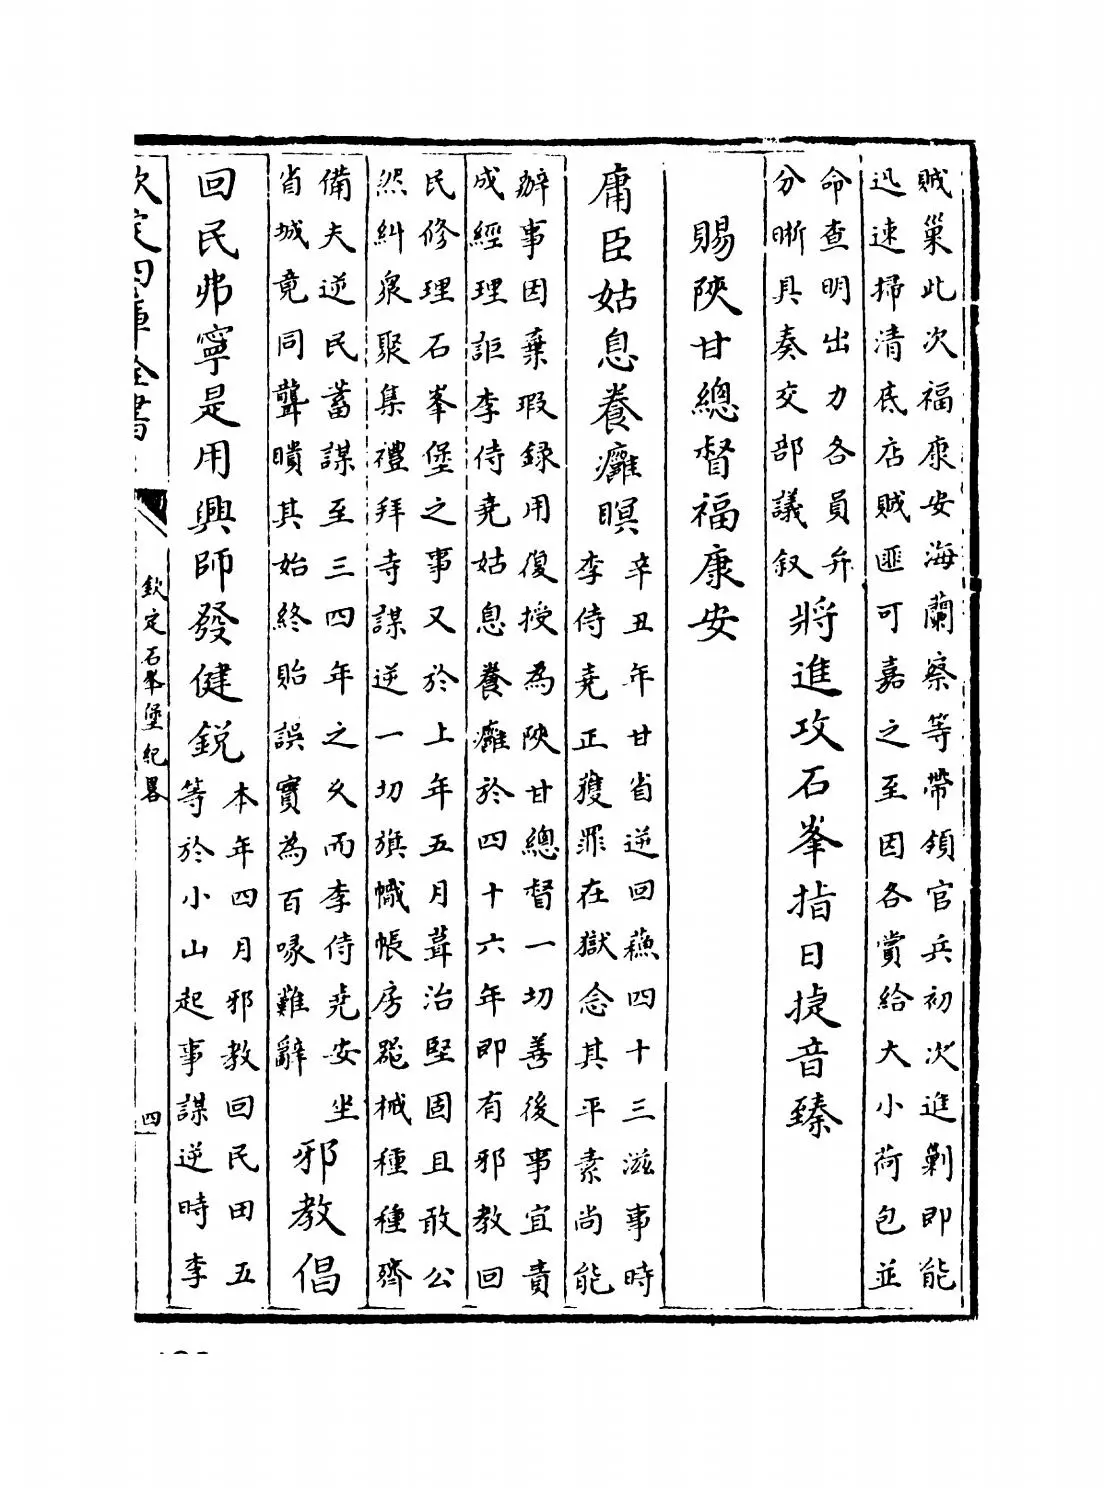 賊巢此次福康安海蘭察等帶領官兵初次進剿即能
迅速掃清底店賊匪可嘉之至因各賞給大小荷包並
命查明出力各員弁
分晰具奏交部議叙
將進攻石峯指日捷音臻
賜陜甘總督福康安
庸臣姑息養癰瞑
辛丑年甘省逆回蘇四十三滋事時
李侍堯正獲罪在獄念其平素尚能
辦事因棄瑕録用復授為陜甘總督一切善後事宜責
成經理詎李侍堯姑息養癰於四十六年即有邪教回
民修理石峯堡之事又於上年五月葺治堅固且敢公
然糾衆聚集禮拜寺謀逆一切旗幟帳房器械種種齊
備夫逆民蓄謀至三四年之久而李侍堯安坐
省城竟同聾瞶其始終貽誤實為百喙難辭
邪教倡
回民弗寧是用興師發健鋭
本年四月邪教回民田五
等於小山起事謀逆時李
欽定四庫全書
欽定石峯堡紀畧
四